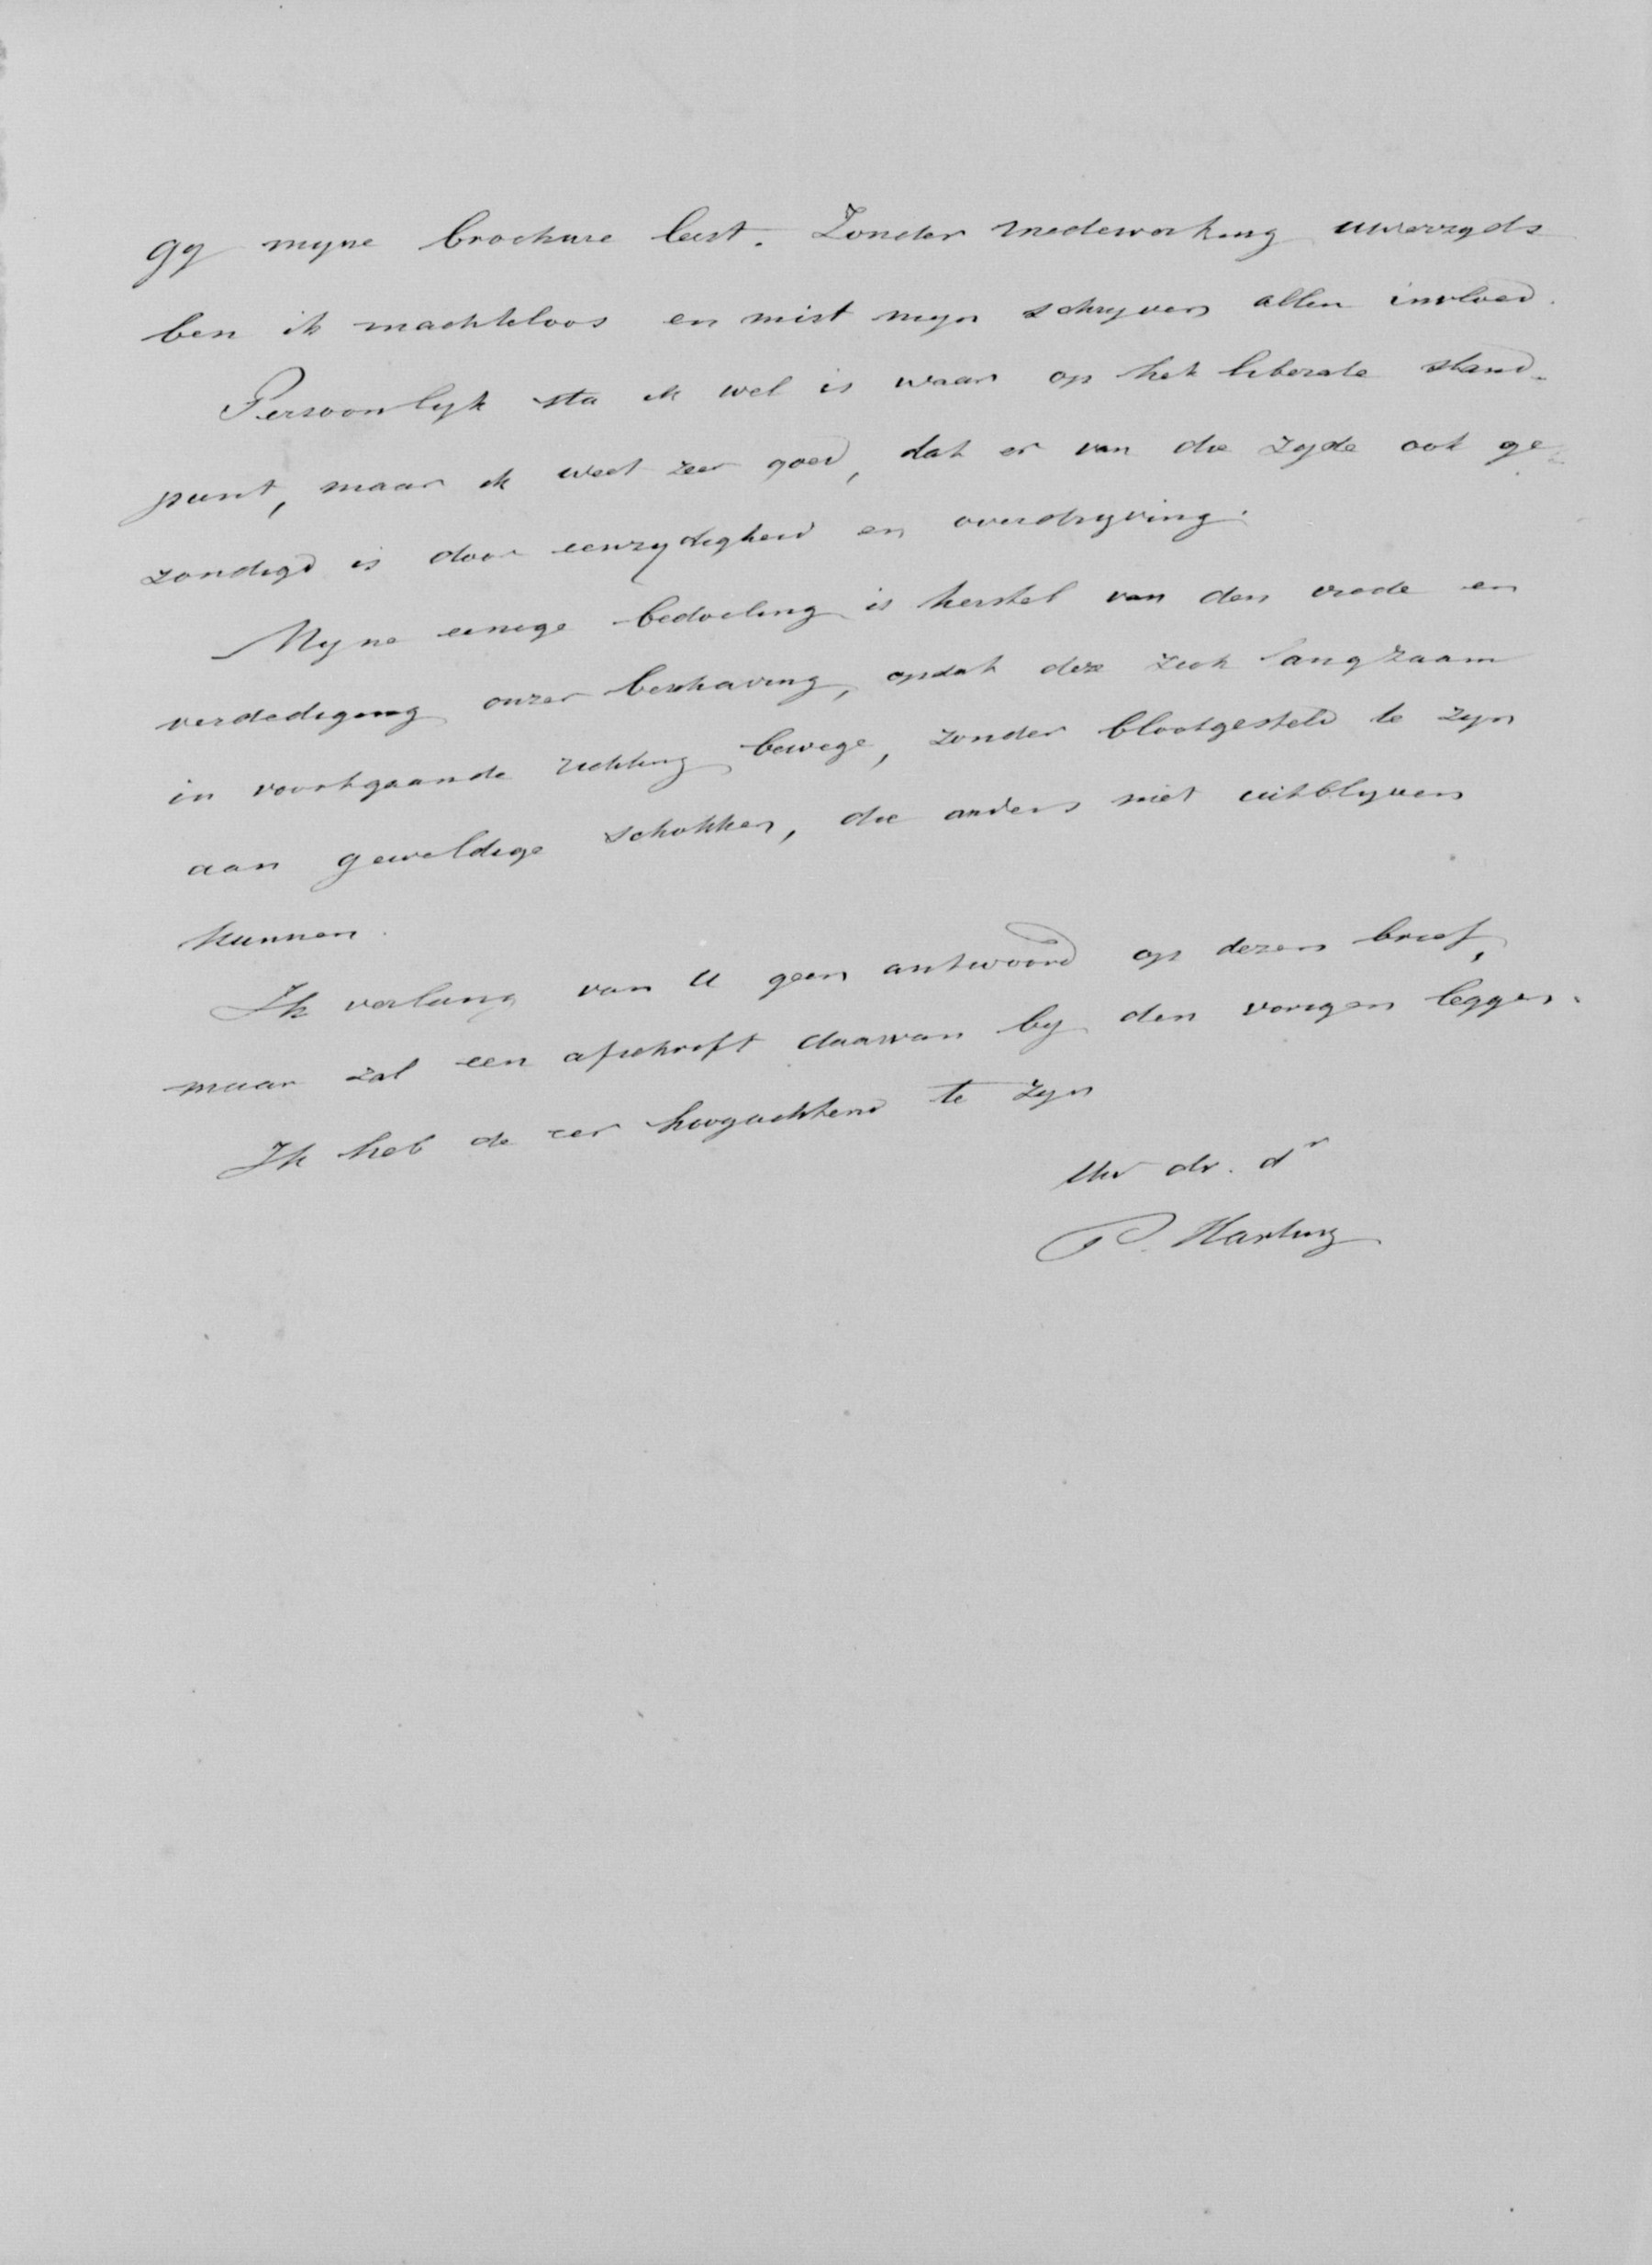 gy myne brochure leest. Zonder medewerking uwerzyds
ben ik machteloos en mist myn schryven allen invloed.
Persoonlyk sta ik wel is waar op het liberale stand-
punt, maar ik weet zeer goed, dat er van die zyde ook ge-
zondigd is door eenzydigheid en overdryving.
Myne eenige bedoeling is herstel van den vrede en
verdediging onzer beschaving, opdat deze zich langzaam
in voortgaande richting bewege, zonder blootgesteld te zyn
aan geweldige schokken, die anders niet uitblyven
kunnen.
Ik verlang van U geen antwoord op dezen brief,
maar zal een afschrift daarvan by den vorigen leggen.
Ik heb de eer hoogachtend te zyn
Uw dv. dr
P. Harting